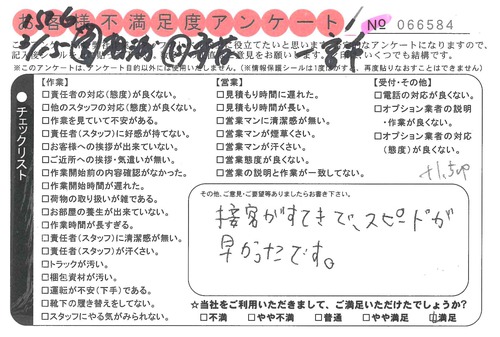 お客様不満足度アンケート
№ 066584
※このアンケートは、アンケート目的以外には使用いたしません。(※情報保護シールは1度はがすと、再度貼りなおすことはできません)
チェックリスト
【作業】
□責任者の対応(態度)が良くない。
□他のスタッフの対応(態度)が良くない。
□作業を見ていて安心がある。
□責任者(スタッフ)に好感が持てない。
□お客様への挨拶が出来ていない。
□ご近所への挨拶・気遣いが無い。
□作業開始前の内容確認がなかった。
□作業開始時間が遅れた。
□荷物の取り扱いが雑である。
□お部屋の養生が出来ていない。
□作業時間が長すぎる。
□責任者(スタッフ)に清潔感が無い。
□責任者(スタッフ)が汗くさい。
□トラックが汚い。
□梱包資材が汚い。
□運転が不安(下手)である。
□靴下の履き替えをしてない。
□スタッフにやる気がみられない。
【営業】
□見積もり時間に遅れた。
□見積もり時間が長い。
□営業マンに清潔感が無い。
□営業マンが煙草くさい。
□営業マンが汗くさい。
□営業態度が良くない。
□営業の説明と作業が一致してない。
【受付・その他】
□電話の対応が良くない。
□オプション業者の説明
・作業が良くない。
□オプション業者の対応
(態度)が良くない。
その他、ご意見・ご要望等ありましたらお書き下さい。
接客がすてきで、スピードが
早かったです。
☆当社をご利用いただきまして、ご満足いただけたでしょうか?
□不満 □やや不満 □普通 □やや満足 □満足